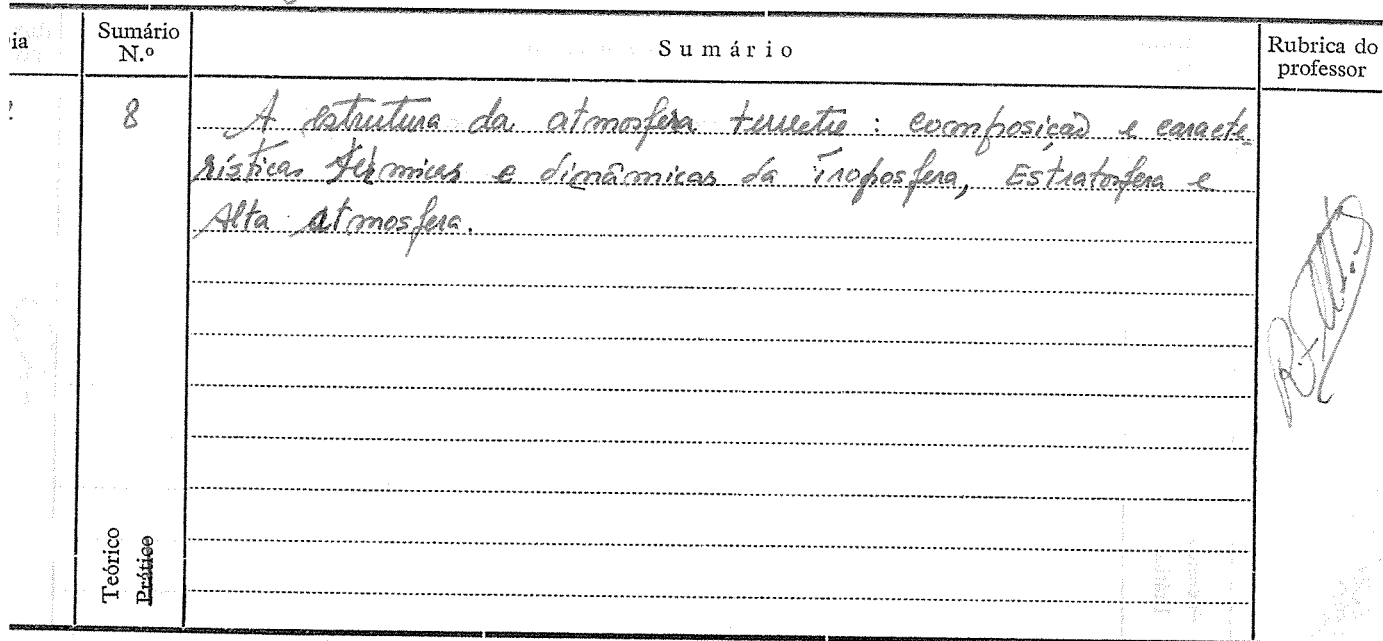 ia
Sumário N.º
Sumário
Rubrica do professor
8
A estrutura da atmosfera terrestre : composição e caracte-
rísticas térmicas e dinâmicas da Troposfera, Estratosfera e
Alta atmosfera.
Teórico
Prático